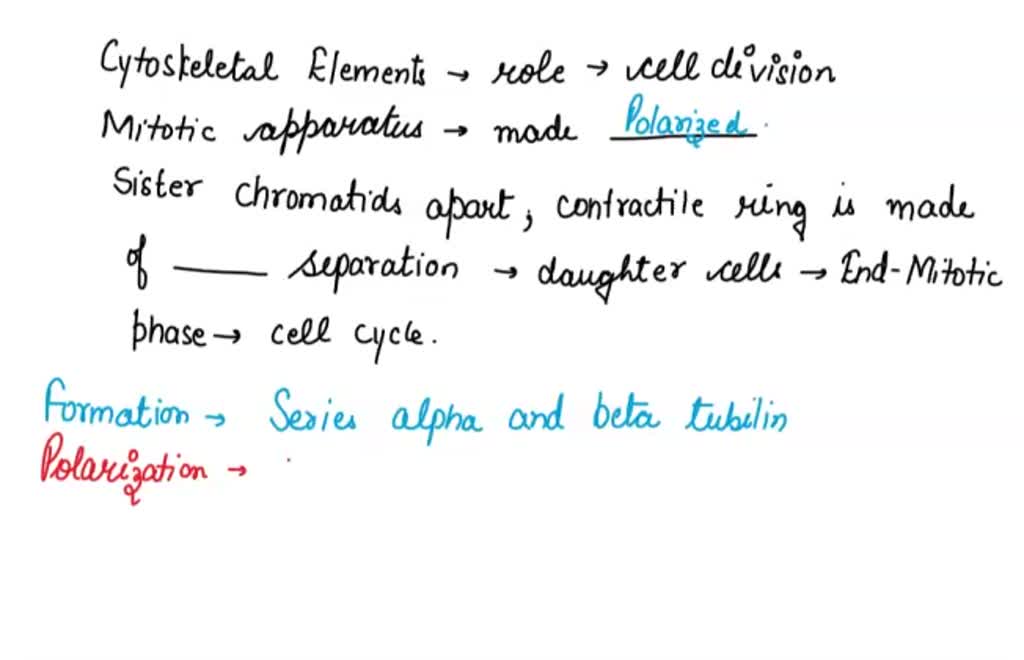 Cytoskeletal Elements → role → cell division
Mitotic apparatus → made Polarized.
Sister chromatids apart, contractile ring is made
of ____ separation → daughter cells → End-Mitotic
phase → cell cycle.
Formation → Series alpha and beta tubilin
Polarization →